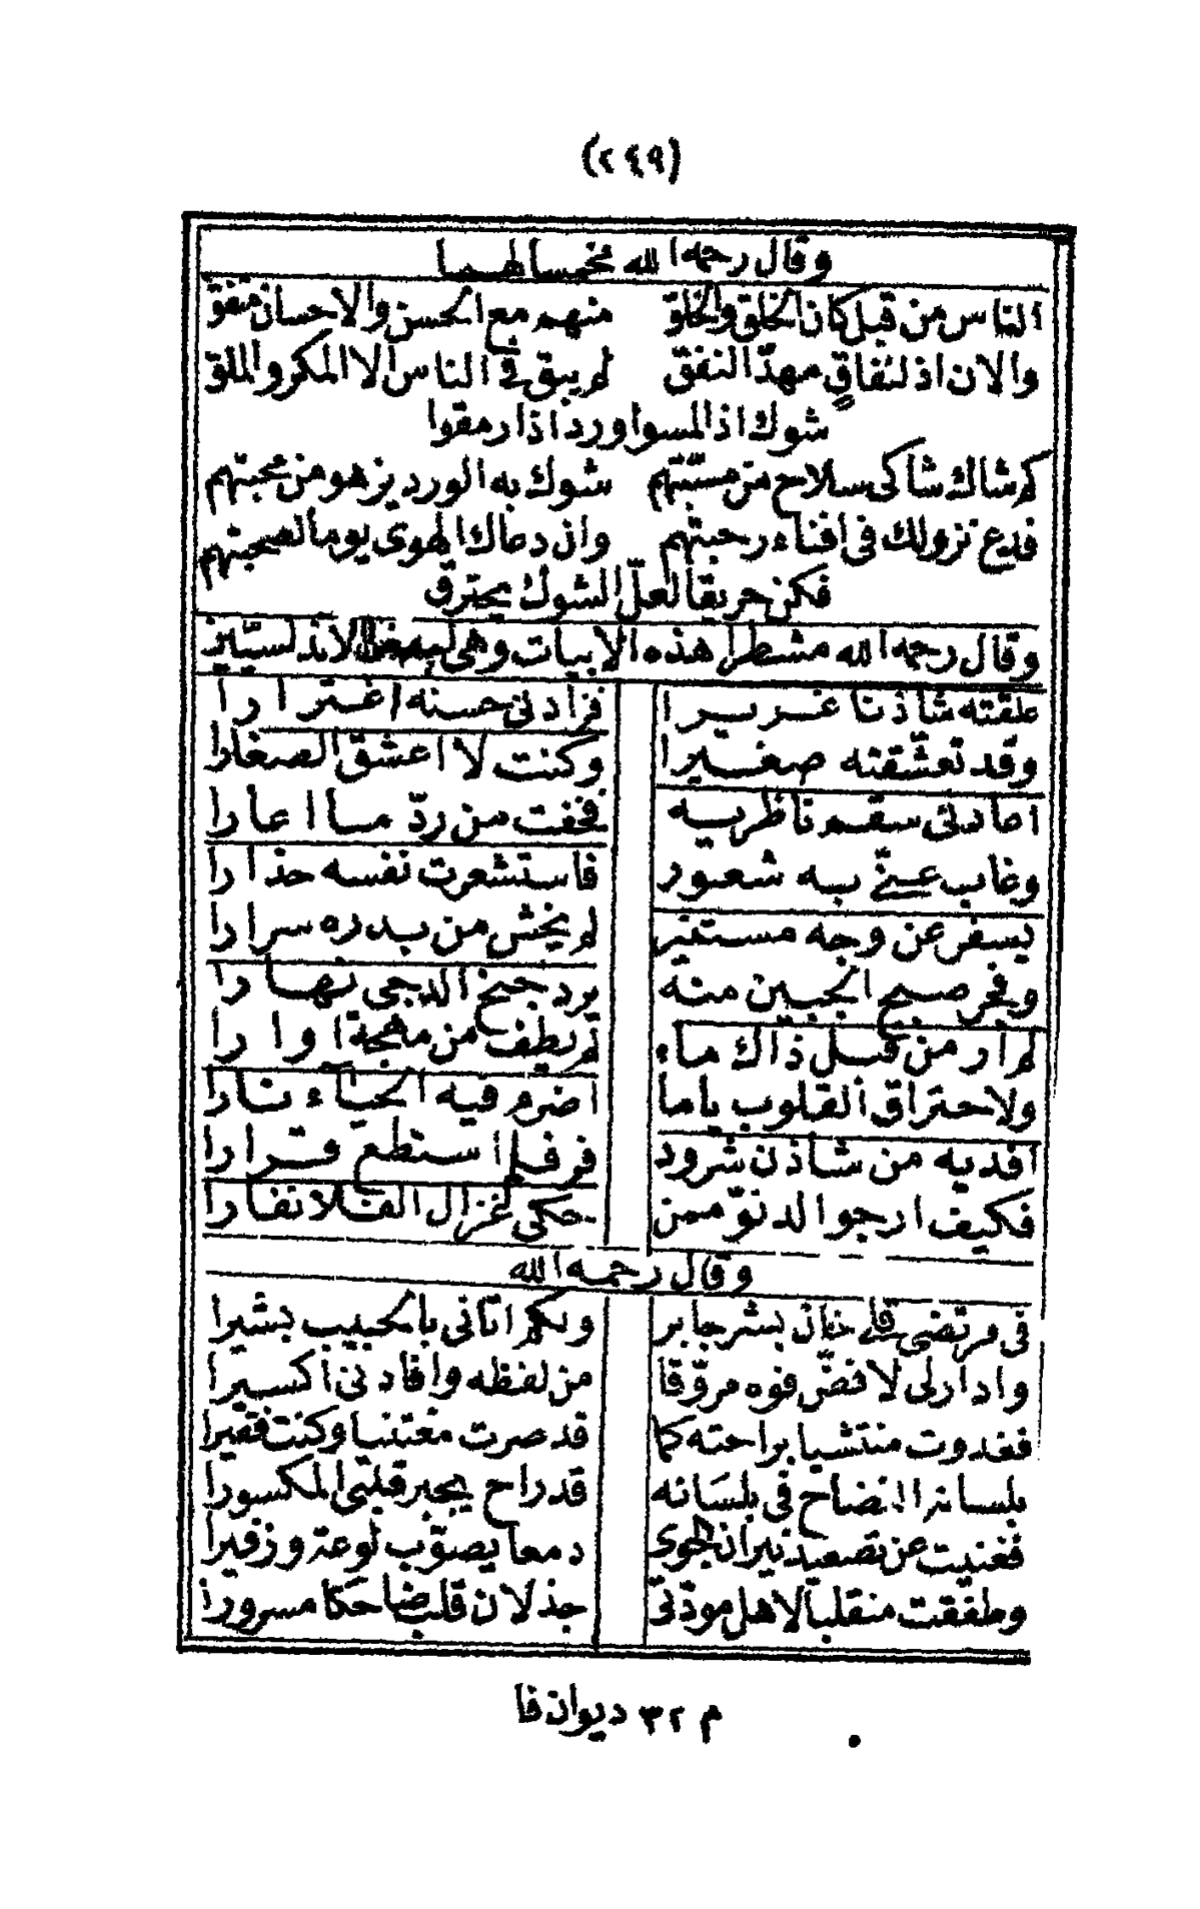 (٢٤٩)
وقال رحمه الله مخمسا لهما
الناس من قبل كان الخلق والخلق منهم مع الحسن والاحسان متفق
والان اذ لنفاق مهدّ النفق لم يبق في الناس الا المكر والملق
شوك اذا لمسوا ورد اذا رمقوا
كم شاك شاكى سلاح من مسبتهم شوك به الورد يزهو من محبتهم
فدع نزولك في افناء رحبتهم وان دعاك الهوى يوما لصحبتهم
فكن حريقا لعلّ الشوك يحترق
وقال رحمه الله مشطرا هذه الابيات وهى لبعض الاندلسيين
علقته شاذنا غريرا فزادني حسنه اغترارا
وقد تعشّقته صغيرا وكنت لا اعشق الصغارا
اعادنى سقم ناظريه فخفت من ردّ ما اعارا
وغاب عنّي به شعور فاستشعرت نفسه حذارا
يسفر عن وجه مستنير لم يخش من بدره سرارا
وفجر صبح الجبين منه يرد جنح الدجى نهارا
لم ار من قبل ذاك ماء لم يطف من مهجة اوارا
ولا حتراق القلوب ياما اضرم فيه الحياء نارا
افديه من شاذن شرود فر فلم استطع قرارا
فكيف ارجو الدنوّ ممن حكى غزال الفلا نفارا
وقال رحمه الله
في مرتضى قلي خان بشر جابر وبكم اتاني بالحبيب بشيرا
وادار لى لا فضّ فوه مروّقا من لفظه وافادني اكسيرا
فغدوت منتشيا براحته كما قد صرت مغتنيا وكنت فقيرا
بلسانه النضاح في بلسانه قد راح يجبر قلبي المكسورا
فغنيت عن تصعيد نيران الجوى دمعا يصوّب لوعة وزفيرا
وطفقت منقلبا لاهل مودّتى جذلان قلب ضاحكا مسرورا
م ٣٢ ديوان فا